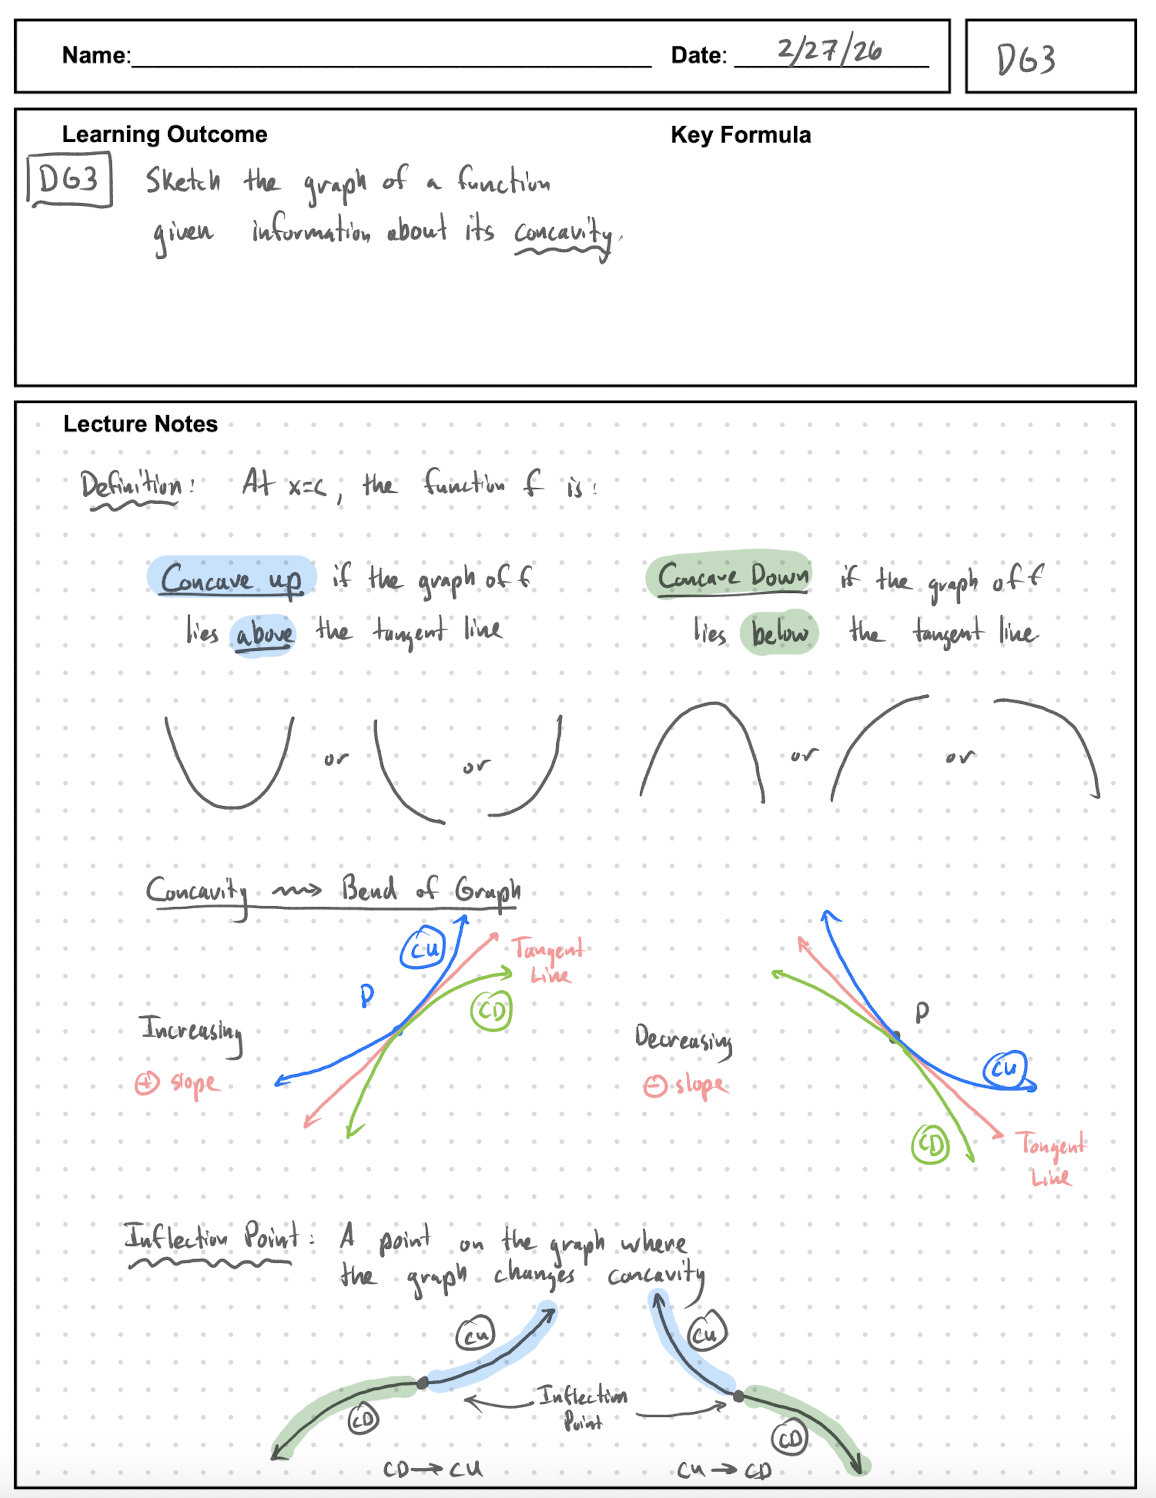 Name: Date: 2/27/26 DG3
Learning Outcome Key Formula
DG3 Sketch the graph of a function
given information about its concavity.
Lecture Notes
Definition: At x=c, the function f is:
Concave up if the graph of f
lies above the tangent line
Concave Down if the graph of f
lies below the tangent line
or or
or or
Concavity → Bend of Graph
CU Tangent
Line
P
CD
Increasing
+ slope
P
Decreasing
- slope
CU
CD Tangent
Line
Inflection Point: A point on the graph where
the graph changes concavity
CU CU
Inflection
Point
CD CD
CD → CU CU → CD